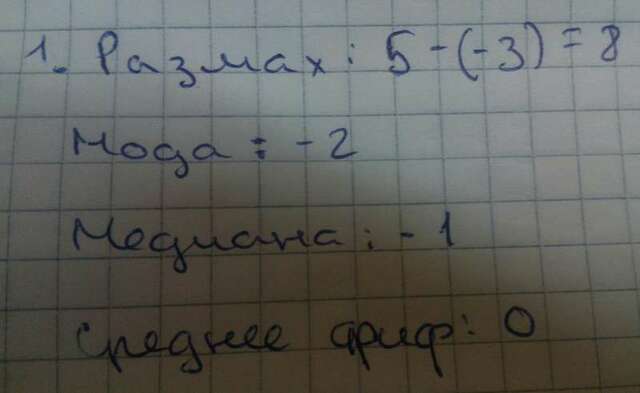 1. Размах: 5-(-3)=8
Мода: -2
Медиана: -1
среднее ариф: 0